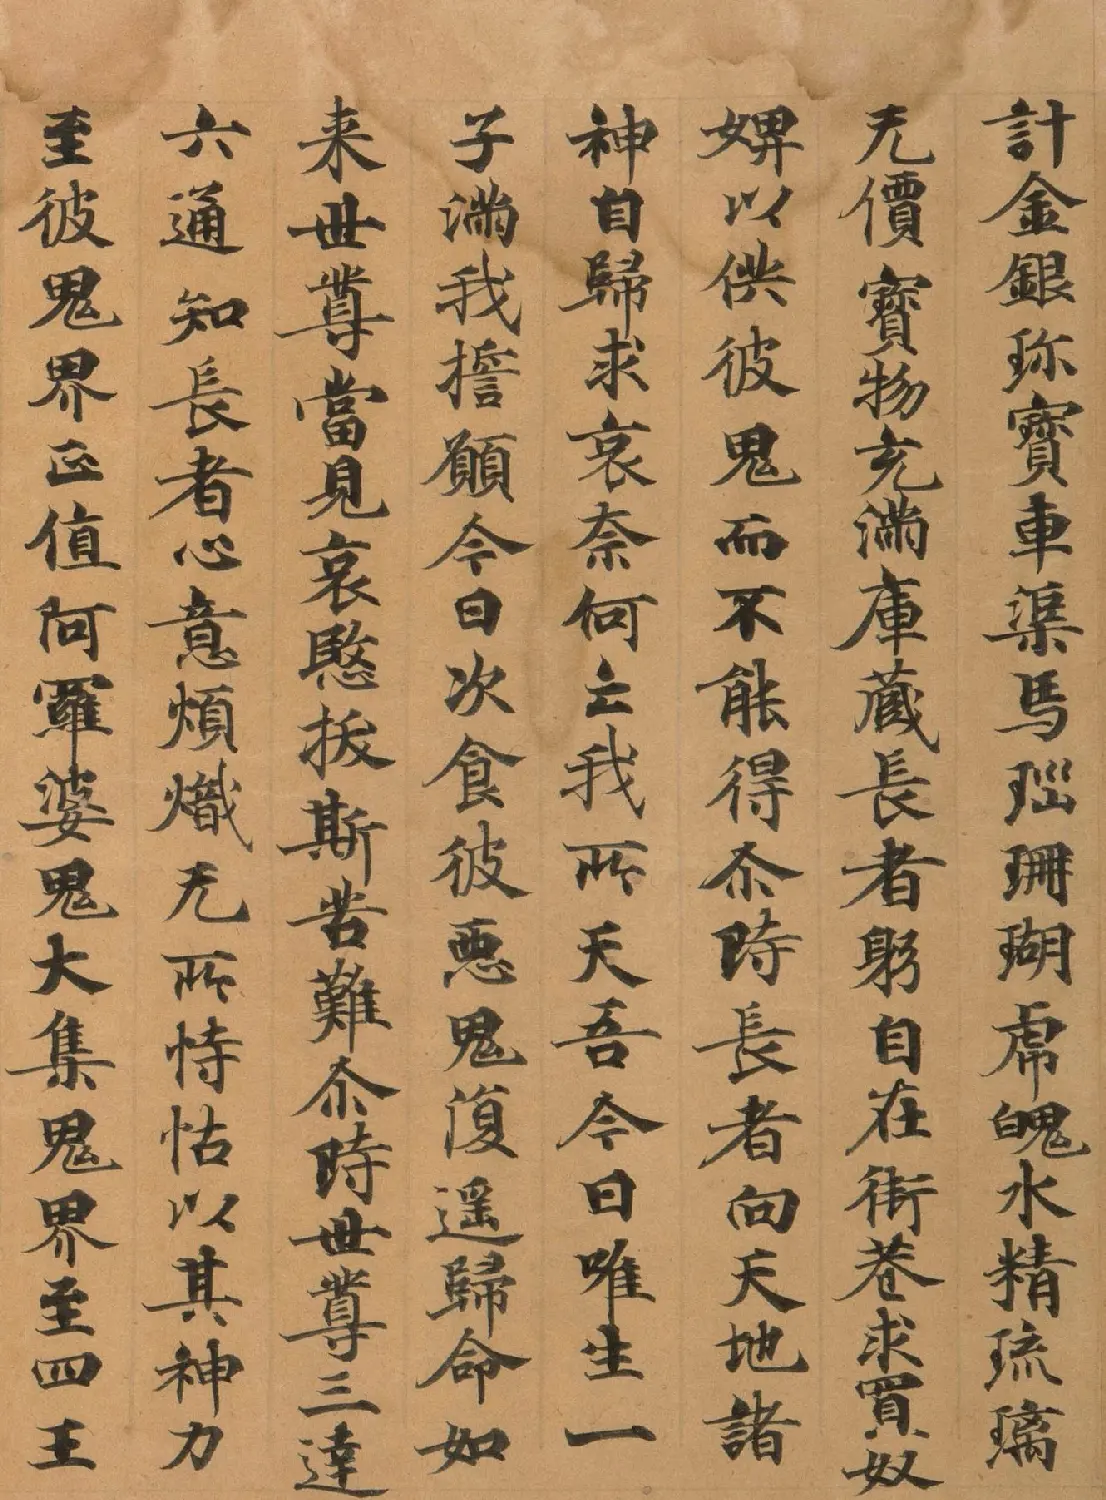 計金銀珎寶車渠馬瑙珊瑚虎魄水精琉璃
无價寶物充滿庫藏長者躬自在街巷求買奴
婢以供彼鬼而不能得尒時長者向天地諸
神自歸求哀奈何云我所天吾今日唯生一
子滿我擔願今日次食彼惡鬼復遥歸命如
来世尊當見哀愍拔斯苦難尒時世尊三達
六通知長者心意煩熾无所恃怙以其神力
至彼鬼界正值阿羅婆鬼大集鬼界至四王